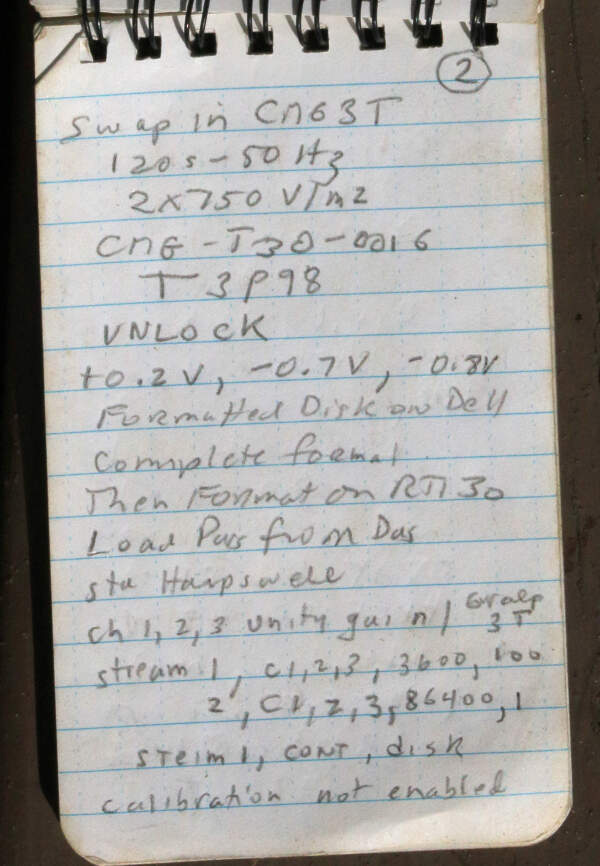 2
Swap in CMG3T
120s-50 Hz
2x750 V/m2
CMG-T30-0016
T3P98
UNLOCK
+0.2V, -0.7V, -0.8V
Formatted Disk on Dell
Complete format
Then Format on RT130
Load Par from Das
sta Harpswell
ch 1,2,3 unity gain / Guralp 3T
stream 1, C1,2,3, 3600, 100
2, C1,2,3, 86400, 1
steim 1, CONT, disk
calibration not enabled